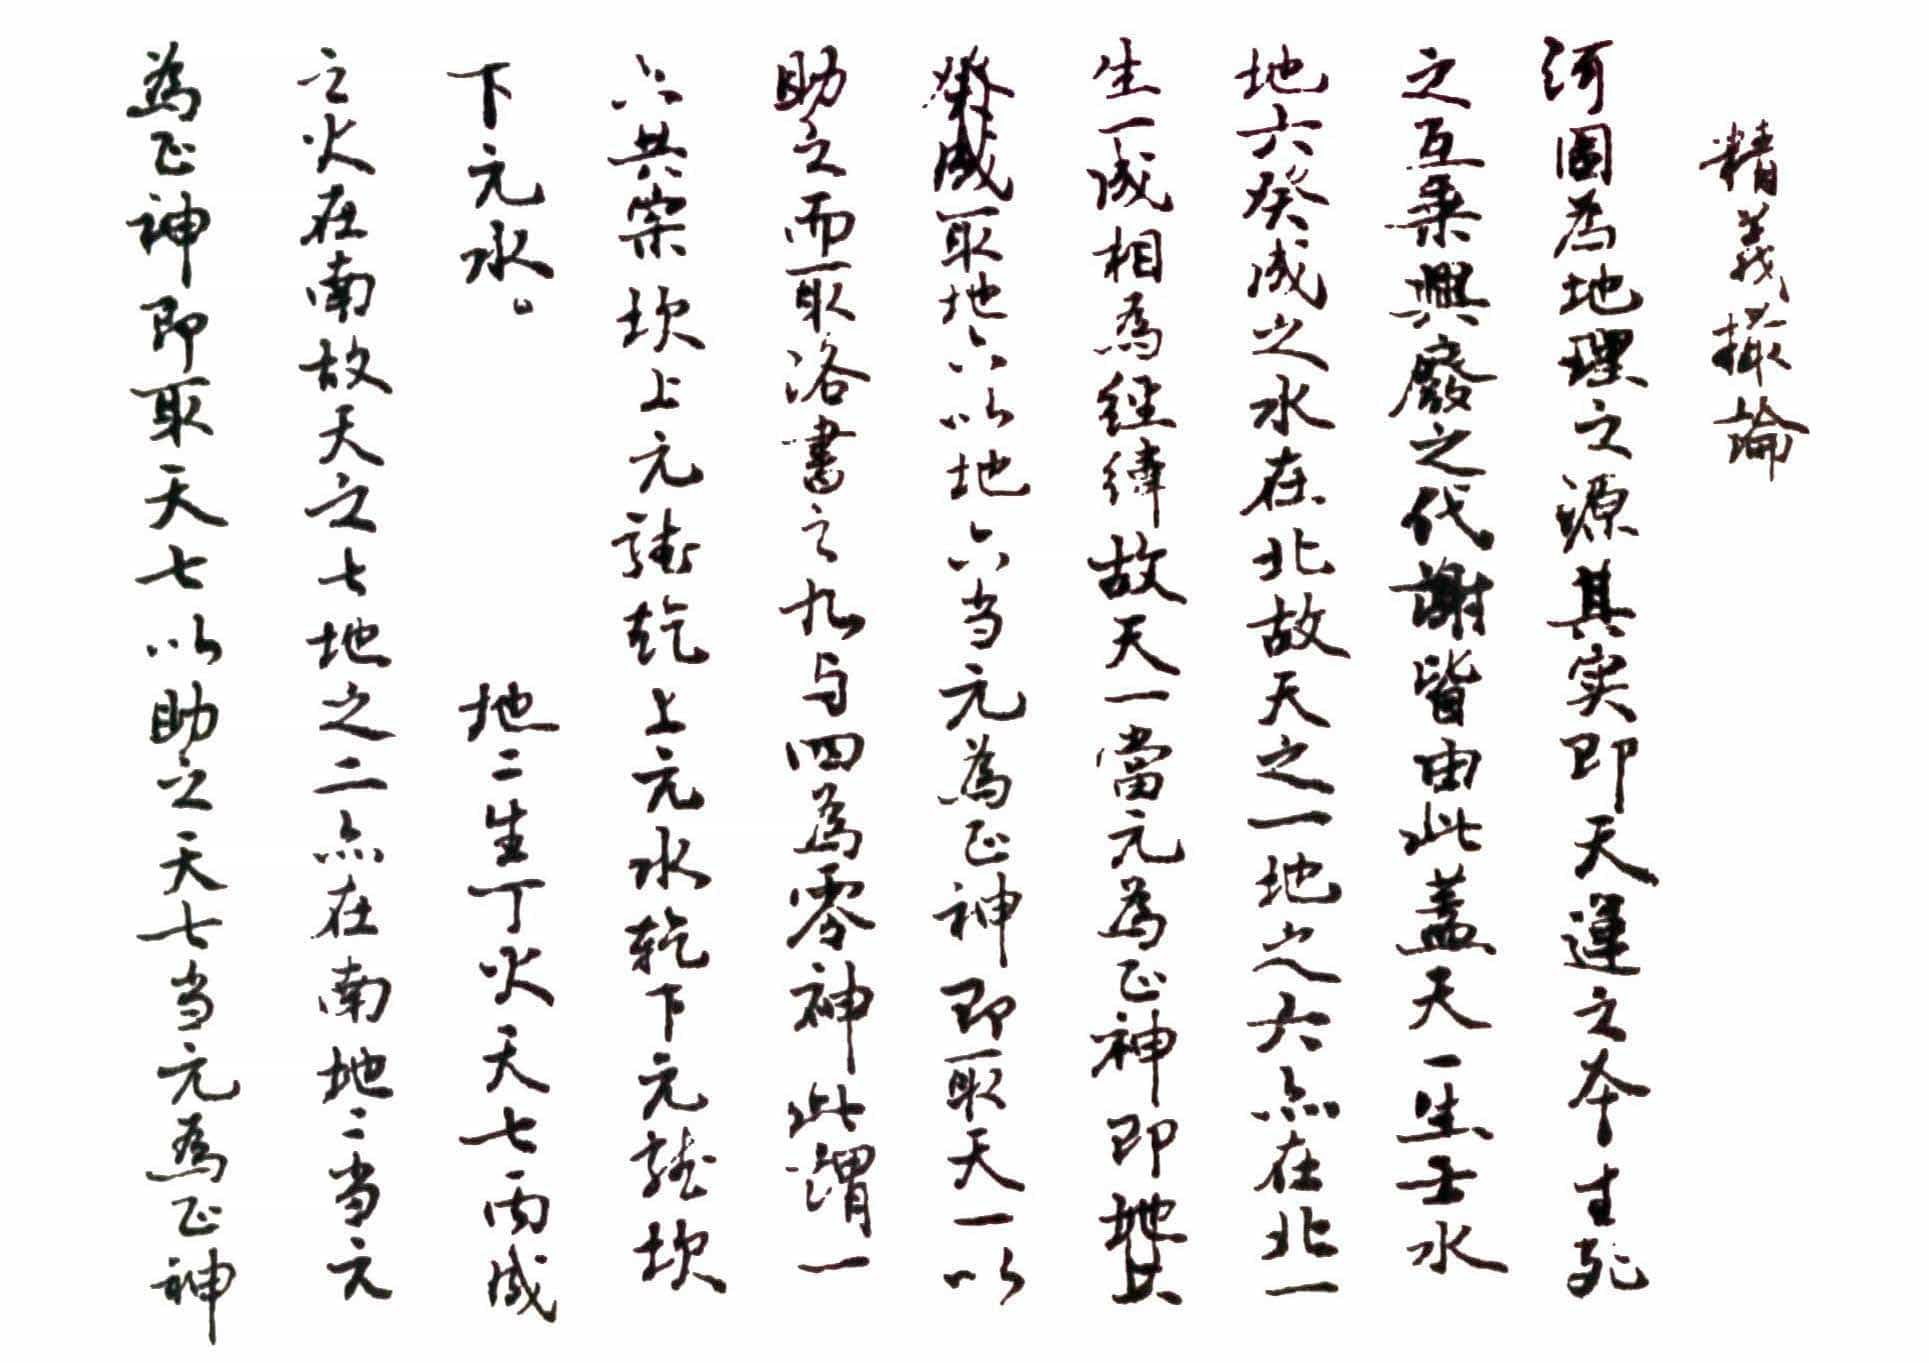 精義撮論
河圖為地理之源其实即天運之本生死
之互乗興廢之代謝皆由此蓋天一生壬水
地六癸成之水在北故天之一地之六点在北一
生一成相為經緯故天一當元為正神即地
癸成取地六以地六当元為正神即取天一以
助之而取洛書之九与四為零神此謂一
六共宗坎上元龍乾上元水乾下元龍坎
下元水。 地二生丁火天七丙成
之火在南故天之七地之二点在南地二当元
為正神即取天七以助之天七当元為正神